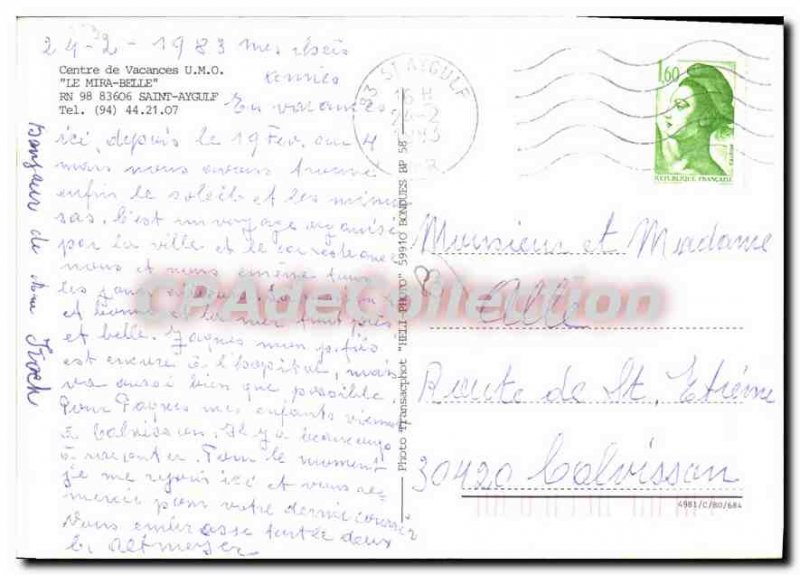 24-2-1983 mes chers
Centre de Vacances U.M.O.
"LE MIRA-BELLE"
RN 98 83606 SAINT-AYGULF
Tel. (94) 44.21.07
En vacances
ici, depuis le 19 Fev. au 4
mars nous avons trouvé
enfin le soleil et les mimo
sas. C'est un voyage organisé
par la ville et le car reste avec
nous et nous emène tous
les jours
et la mer tout près
et belle. Jacques mon p. fils
est encore à l'hopital, mais
va aussi bien que possible.
Pour Paques mes enfants viennent
à Calvisson. Il y a beaucoup
à raconter. Pour le moment
je me réjouis ici et vous re
mercie pour votre dernier
Vous embrasse toutes deux
Bonjour de
83 ST AYGULF
16 H
24-2
1983
1,60
REPUBLIQUE FRANÇAISE
Photo "Transacphot" "HELI-PHOTO" 59910 BONDUES BP 58
Monsieur et Madame
Route de St. Etienne
30420 Calvisson
4981/C/80/684
CPAdeCollection